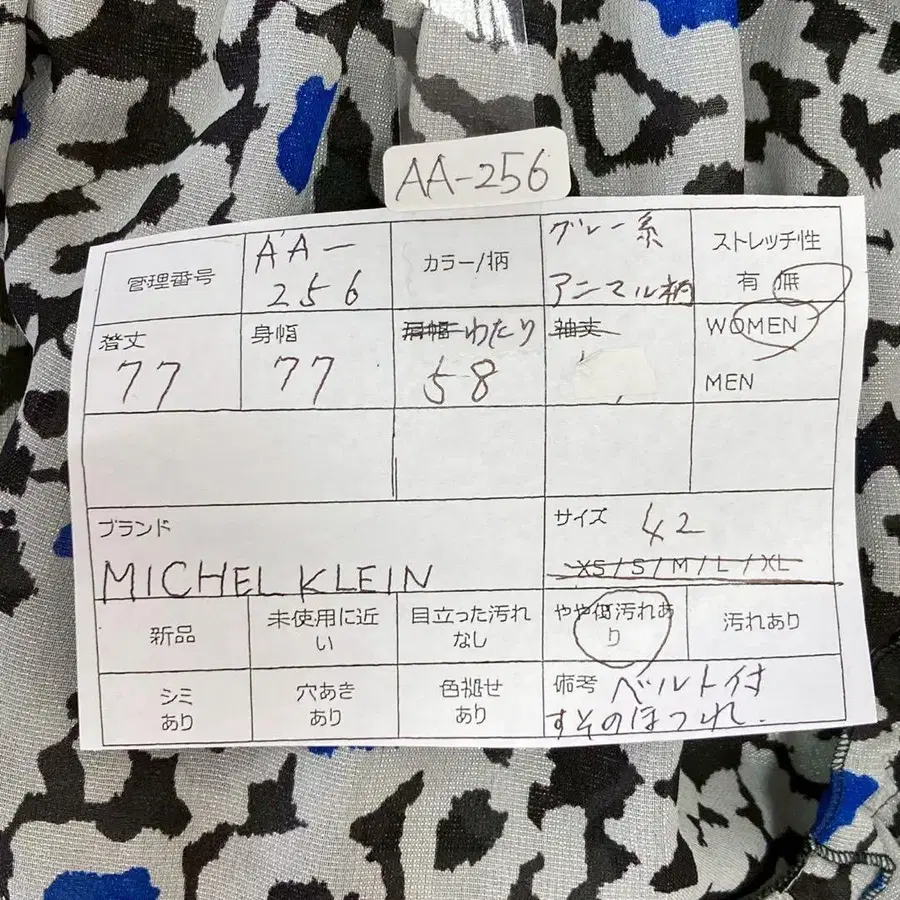 AA-256
管理番号
AA-
256
カラー/柄
グレー系
アニマル柄
ストレッチ性
有 無
着丈
77
身幅
77
肩幅 わたり
58
袖丈
WOMEN
MEN
ブランド
MICHEL KLEIN
サイズ 42
XS/S/M/L/XL
新品
未使用に近
い
目立った汚れ
なし
やや傷汚れあ
り
汚れあり
シミ
あり
穴あき
あり
色褪せ
あり
備考 ベルト付
すそのほつれ.